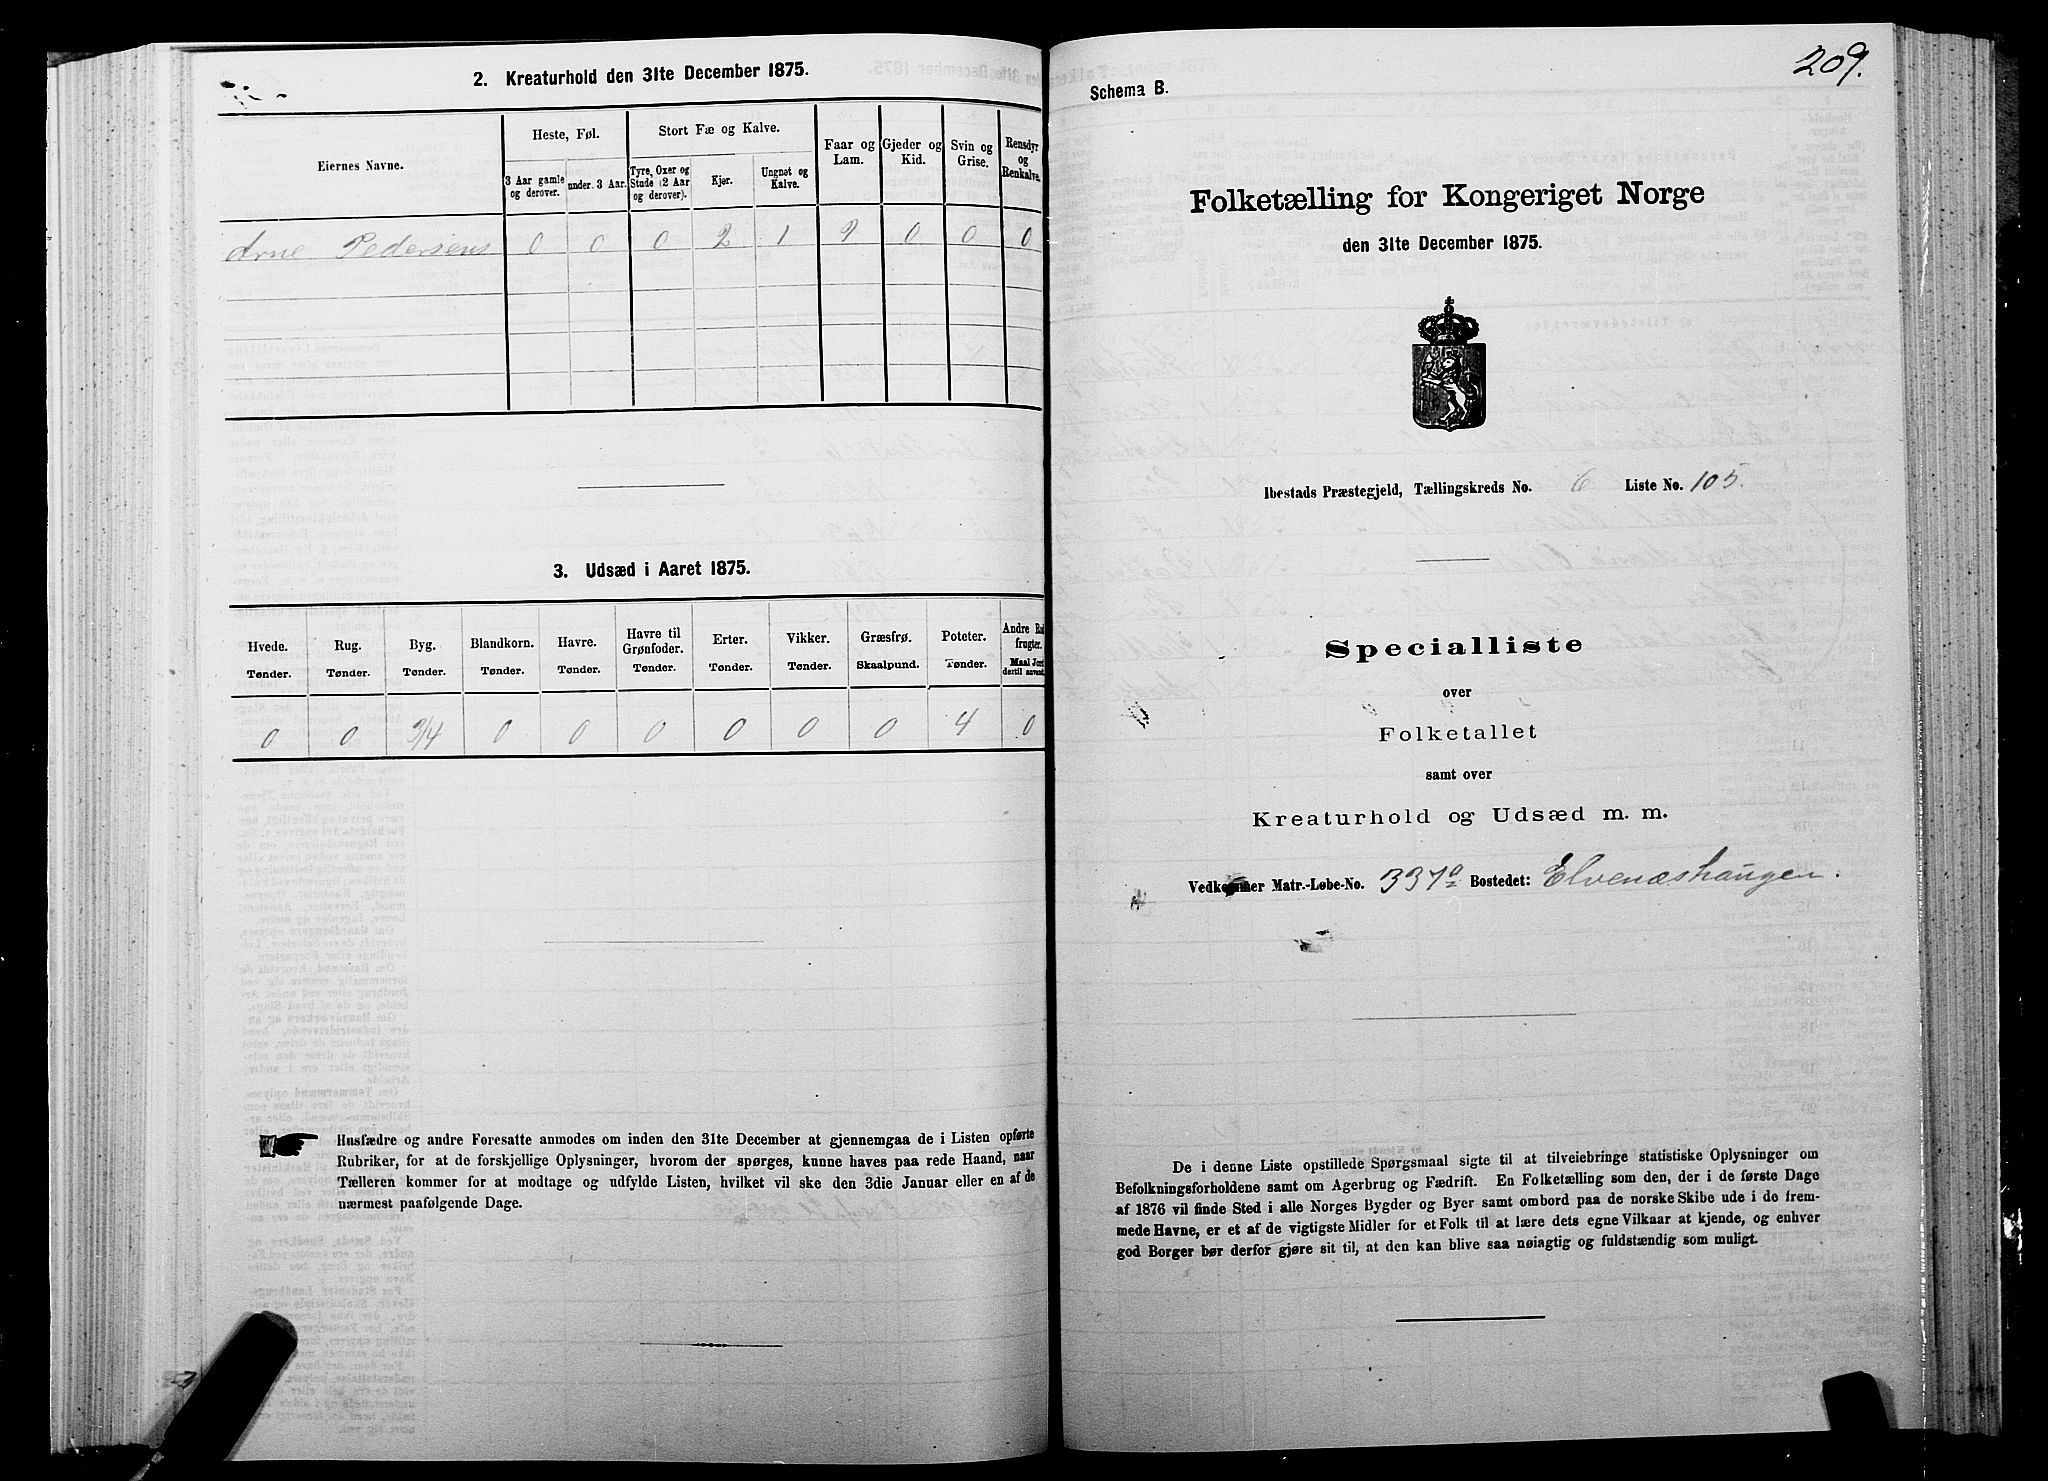 2. Kreaturhold den 31te December 1875.
Eiernes Navne.
Heste, Føl.
3 Aar gamle og derover.
under 3 Aar.
Stort Fæ og Kalve.
Tyre, Oxer og Stude (2 Aar og derover).
Kjør.
Ungnøt og Kalve.
Faar og Lam.
Gjeder og Kid.
Svin og Grise.
Rensdyr og Renkalve.
Arne Pedersens 0 0 0 2 1 9 0 0 0
3. Udsæd i Aaret 1875.
Hvede. Rug. Byg. Blandkorn. Havre. Havre til Grønfoder. Erter. Vikker. Græsfrø. Poteter. Andre Rodfrugter.
Tønder. Tønder. Tønder. Tønder. Tønder. Tønder. Tønder. Tønder. Skaalpund. Tønder. Maal Jord dertil anvendt
0 0 3/4 0 0 0 0 0 0 4 0
Husfædre og andre Foresatte anmodes om inden den 31te December at gjennemgaa de i Listen opførte
Rubriker, for at de forskjellige Oplysninger, hvorom der spørges, kunne haves paa rede Haand, naar
Tælleren kommer for at modtage og udfylde Listen, hvilket vil ske den 3die Januar eller en af de
nærmest paafølgende Dage.
209.
Schema B.
Folketælling for Kongeriget Norge
den 31te December 1875.
Ibestads Præstegjeld, Tællingskreds No. 6 Liste No. 105.
Specialliste
over
Folketallet
samt over
Kreaturhold og Udsæd m. m.
Vedkommer Matr.-Løbe-No. 337a Bostedet: Elvenæshaugen.
De i denne Liste opstillede Spørgsmaal sigte til at tilveiebringe statistiske Oplysninger om
Befolkningsforholdene samt om Agerbrug og Fædrift. En Folketælling som den, der i de første Dage
af 1876 vil finde Sted i alle Norges Bygder og Byer samt ombord paa de norske Skibe ude i de frem-
mede Havne, er et af de vigtigste Midler for et Folk til at lære dets egne Vilkaar at kjende, og enhver
god Borger bør derfor gjøre sit til, at den kan blive saa nøiagtig og fuldstændig som muligt.